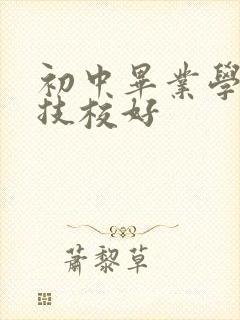 初中畢業學
技校好
蕭黎草